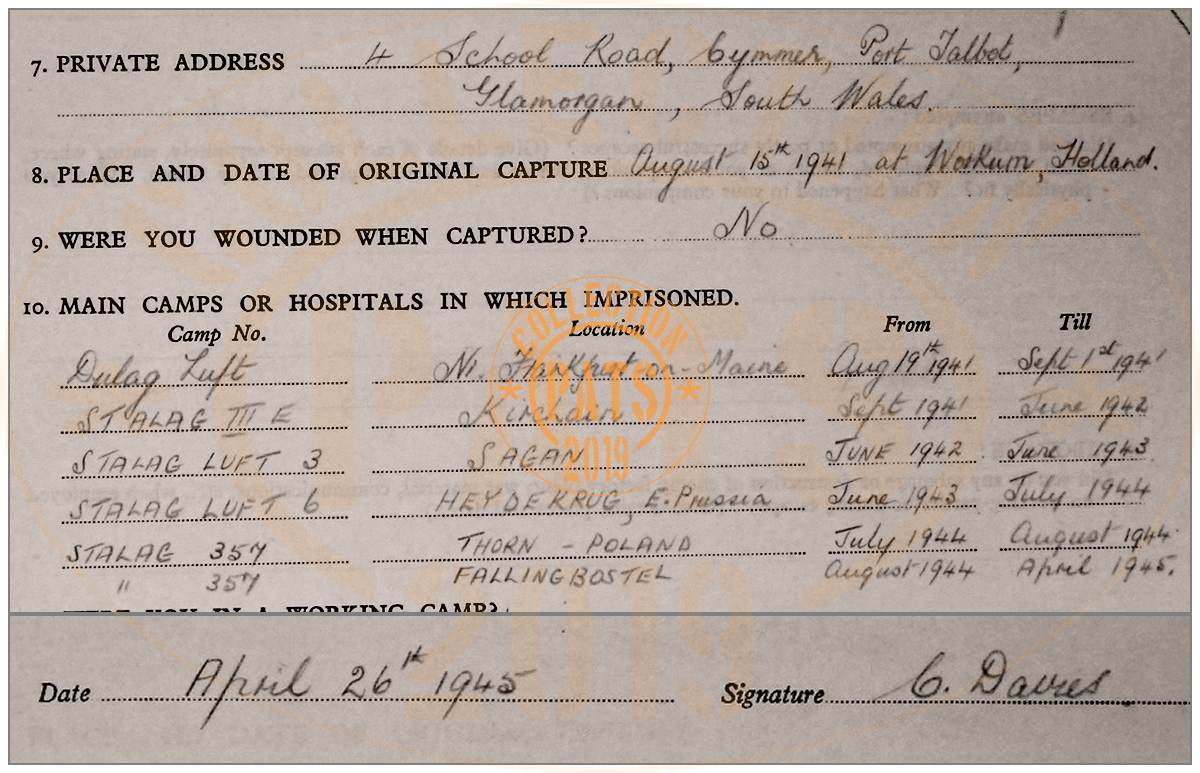 7. PRIVATE ADDRESS 4 School Road, Cymmer, Port Talbot,
Glamorgan, South Wales.
8. PLACE AND DATE OF ORIGINAL CAPTURE August 15th 1941 at Workum, Holland.
9. WERE YOU WOUNDED WHEN CAPTURED? No
10. MAIN CAMPS OR HOSPITALS IN WHICH IMPRISONED.
Camp No. Location From Till
Dulag Luft Nr. Frankfurt-on-Maine Aug 19th 1941 Sept 1st 1941
STALAG III E Kirchain Sept 1941 June 1942
STALAG LUFT 3 SAGAN JUNE 1942 June 1943
STALAG LUFT 6 HEYDEKRUG, E. Prussia June 1943 July 1944
STALAG 357 THORN - POLAND July 1944 August 1944
" 357 FALLINGBOSTEL August 1944 April 1945.
WERE YOU IN A WORKING CAMP?
Date April 26th 1945 Signature C. Davies
COLLECTION
PATS
2019